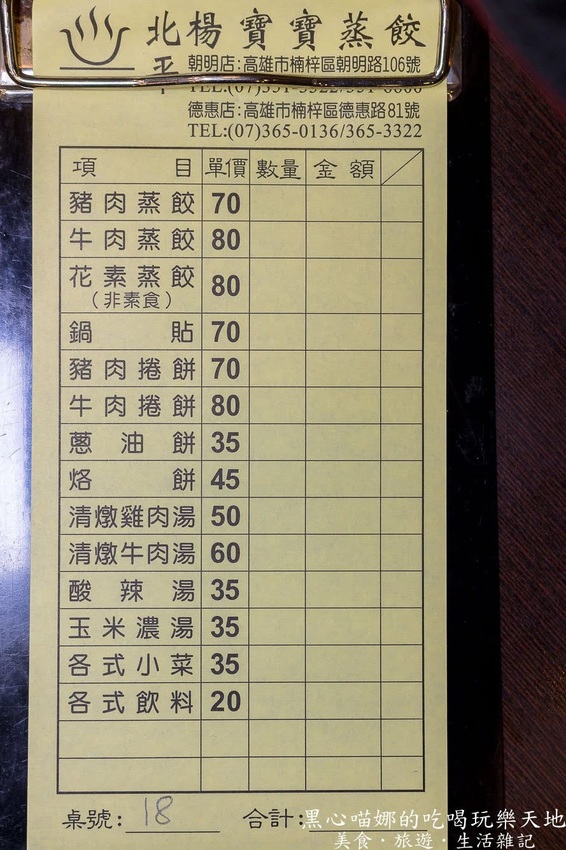 北平楊寶寶蒸餃
朝明店:高雄市楠梓區朝明路106號
德惠店:高雄市楠梓區德惠路81號
TEL:(07)365-0136/365-3322
項目 單價 數量 金額
豬肉蒸餃 70
牛肉蒸餃 80
花素蒸餃 80
(非素食)
鍋貼 70
豬肉捲餅 70
牛肉捲餅 80
蔥油餅 35
烙餅 45
清燉雞肉湯 50
清燉牛肉湯 60
酸辣湯 35
玉米濃湯 35
各式小菜 35
各式飲料 20
桌號: 18 合計:
黑心喵娜的吃喝玩樂天地
美食·旅遊·生活雜記